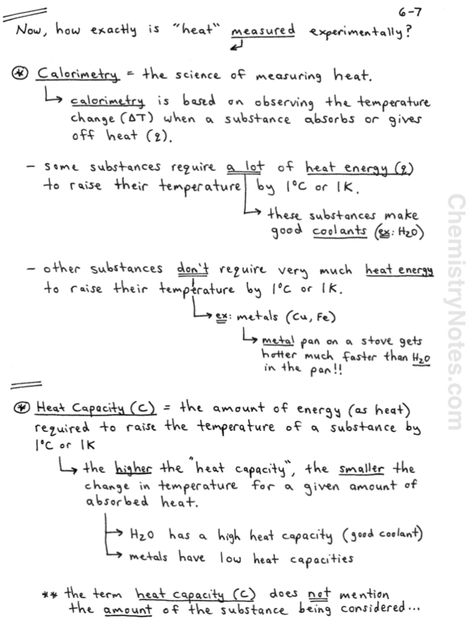 6-7
Now, how exactly is "heat" measured experimentally?
* Calorimetry = the science of measuring heat.
calorimetry is based on observing the temperature
change (ΔT) when a substance absorbs or gives
off heat (q).
- some substances require a lot of heat energy (q)
to raise their temperature by 1°C or 1K.
these substances make
good coolants (ex: H2O)
- other substances don't require very much heat energy
to raise their temperature by 1°C or 1K.
ex: metals (Cu, Fe)
metal pan on a stove gets
hotter much faster than H2O
in the pan!!
* Heat Capacity (C) = the amount of energy (as heat)
required to raise the temperature of a substance by
1°C or 1K
the higher the "heat capacity", the smaller the
change in temperature for a given amount of
absorbed heat.
H2O has a high heat capacity (good coolant)
metals have low heat capacities
** the term heat capacity (C) does not mention
the amount of the substance being considered...
ChemistryNotes.com